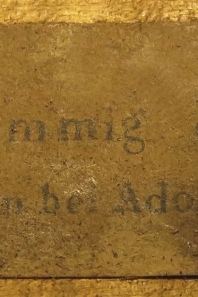 mmig
n bei Ado